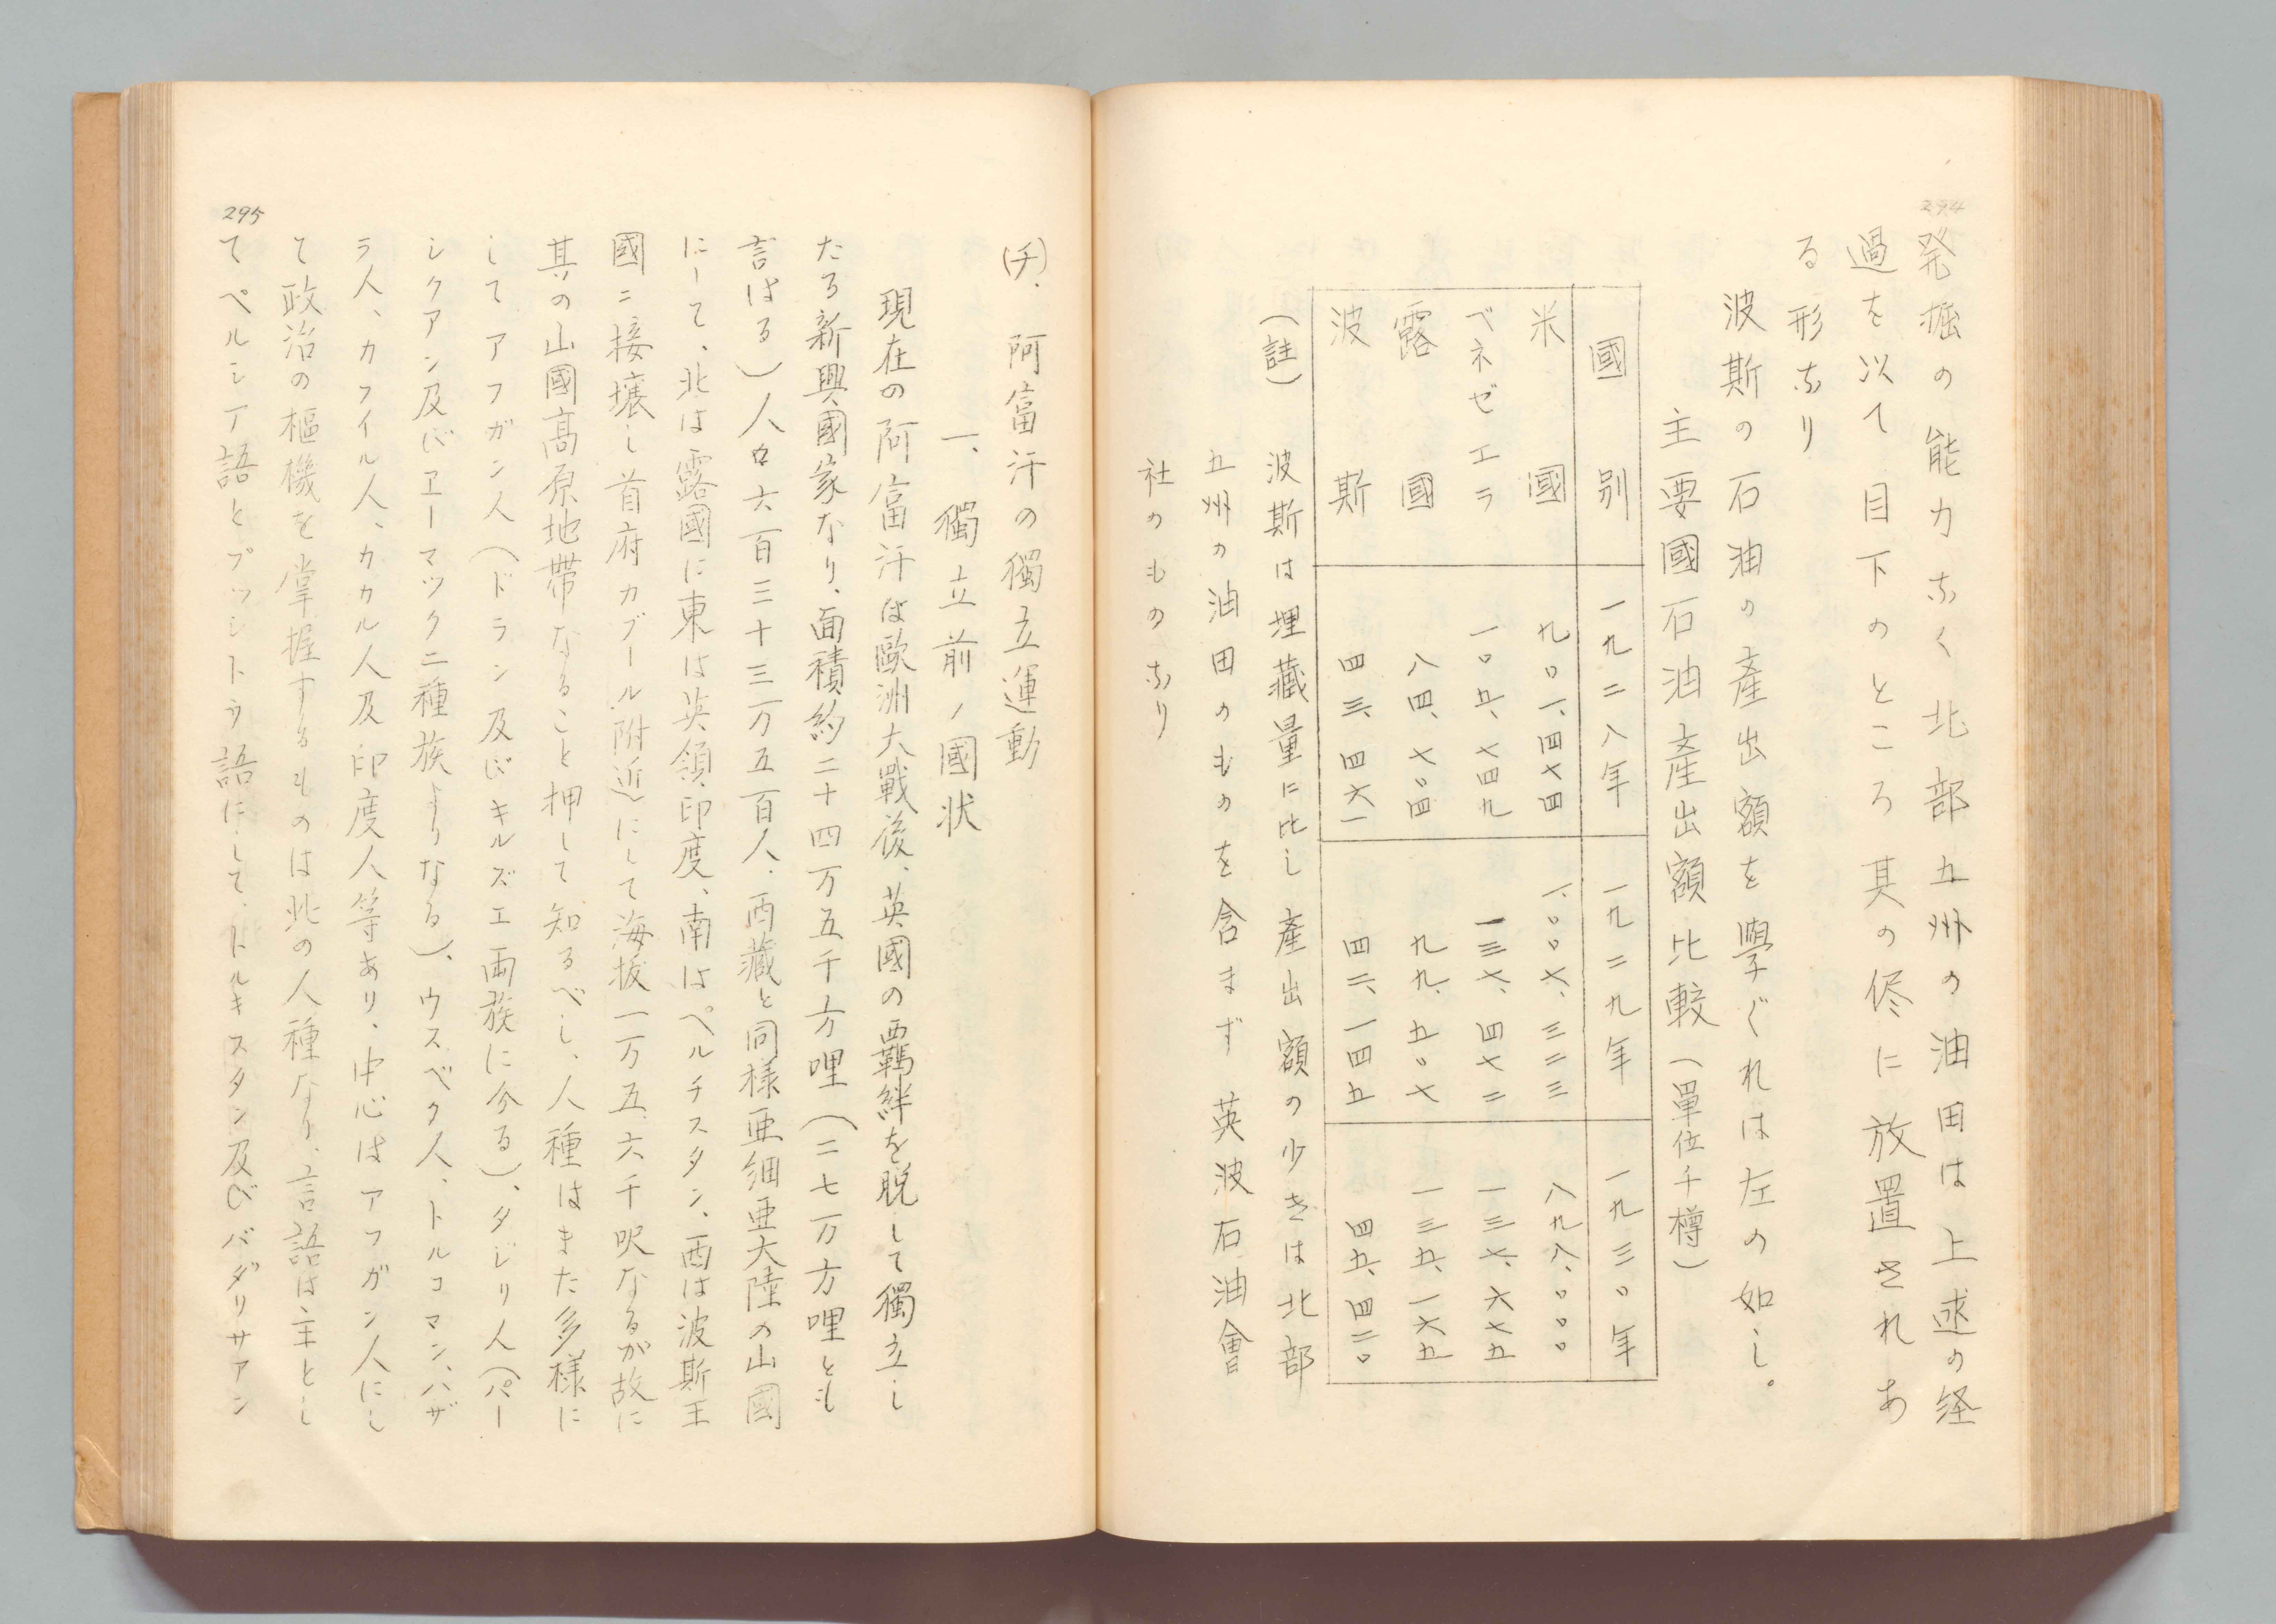 294
発掘の能力なく北部五州の油田は上述の経
過を以て目下のところ其の侭に放置されあ
る形なり
波斯の石油の產出額を擧ぐれは左の如し。
主要國石油產出額比較(單位千樽)
國別 一九二八年 一九二九年 一九三〇年
米國 九〇一、四七四 一、〇〇七、三二三 八九八、〇〇〇
ベネゼエラ 一〇五、七四九 一三七、四七二 一三七、六七五
露國 八四、七〇四 九九、五〇七 一三五、一六五
波斯 四三、四六一 四二、一四五 四五、四二〇
(註) 波斯は埋藏量に比し產出額の少きは北部
五州の油田のものを含まず英波石油會
社のものなり
(チ)、阿富汗の獨立運動
一、獨立前ノ國状
現在の阿富汗は歐洲大戰後、英國の羈絆を脱して獨立し
たる新興國家なり、面積約二十四万五千方哩(二七万方哩とも
言はる)人口六百三十三万五百人、西藏と同様亜細亜大陸の山國
にして、北は露國に東は英領印度、南はペルチスタン、西は波斯王
國ニ接壤し首府カブール附近にして海抜一万五、六千呎なるが故に
其の山國高原地帶なること押して知るべし、人種はまた多様に
してアフガン人(ドラン及びキルズエ両族に分る)、タジリ人(パー
シクアン及びエーマツク二種族よりなる)、ウスベク人、トルコマン、ハザ
ラ人、カフイル人、カカル人及印度人等あり、中心はアフガン人にし
て政治の樞機を掌握するものは北の人種なり、言語は主とし
てペルシア語とプツシトウ語にして、トルキスタン及びバダリサアン
295